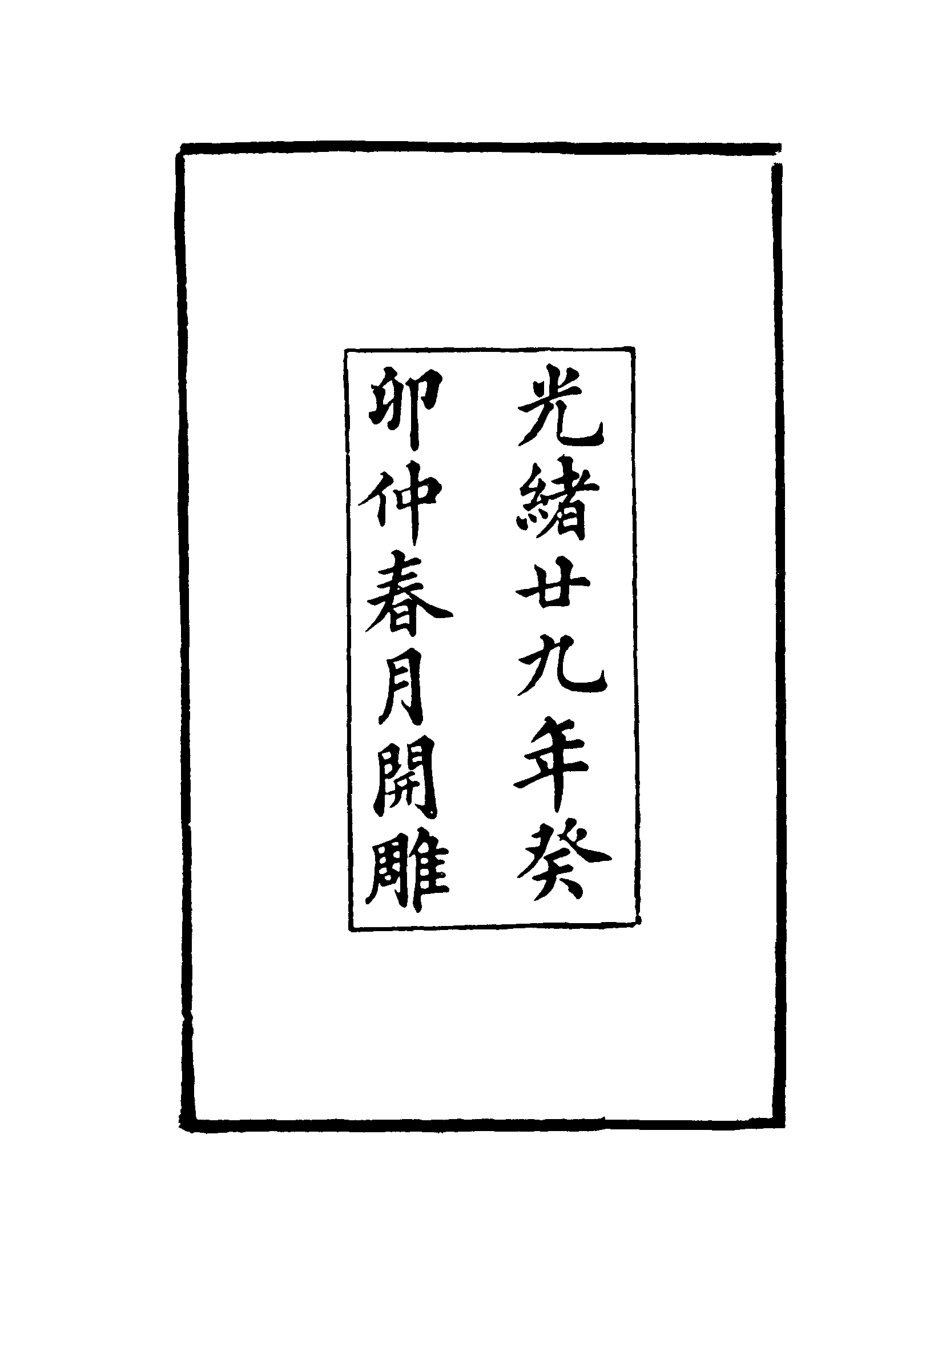 光緒廿九年癸
卯仲春月開雕